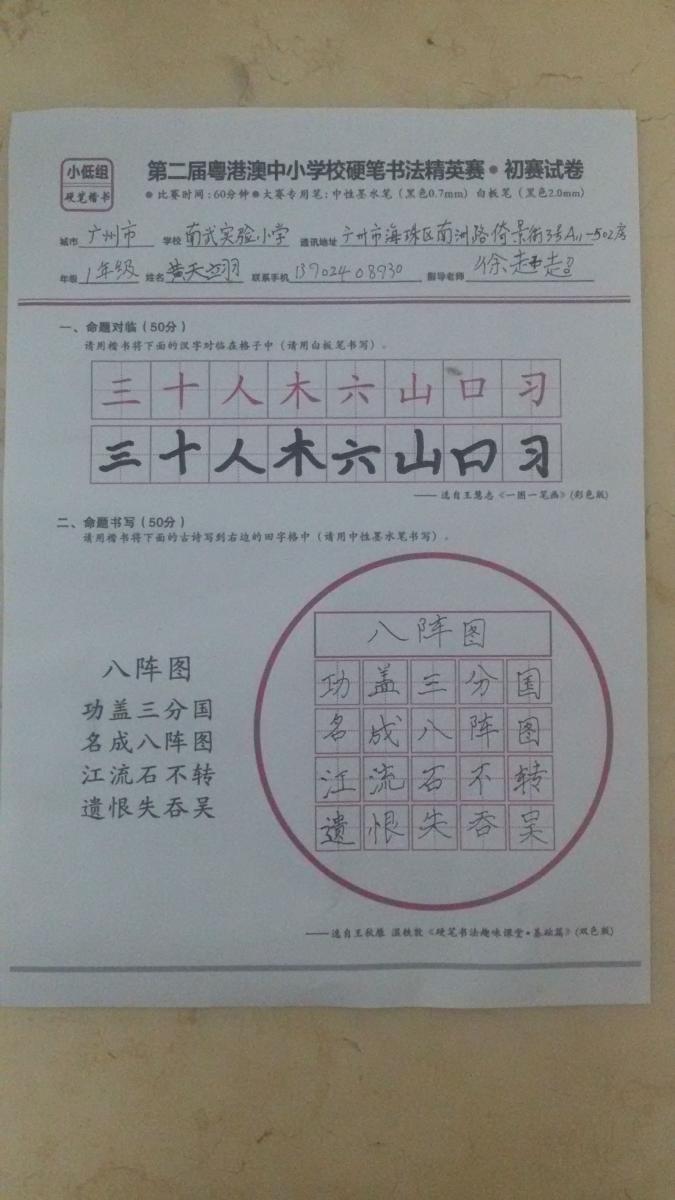 小低组
硬笔楷书
第二届粤港澳中小学校硬笔书法精英赛·初赛试卷
●比赛时间:60分钟●大赛专用笔:中性墨水笔(黑色0.7mm) 白板笔(黑色2.0mm)
城市 广州市 学校 南武实验小学 通讯地址 广州市海珠区南洲路倚景街3号A11-502房
年级 1年级 姓名 黄天翊 联系手机 13702408930 指导老师 徐
一、命题对临(50分)
请用楷书将下面的汉字对临在格子中(请用白板笔书写)。
三十人木六山口习
三十人木六山口习
——选自王慧志《一图一笔画》(彩色版)
二、命题书写(50分)
请用楷书将下面的古诗写到右边的田字格中(请用中性墨水笔书写)。
八阵图
功盖三分国
名成八阵图
江流石不转
遗恨失吞吴
八阵图
功盖三分国
名成八阵图
江流石不转
遗恨失吞吴
——选自王秋雁 温轶敦《硬笔书法趣味课堂·基础篇》(双色版)